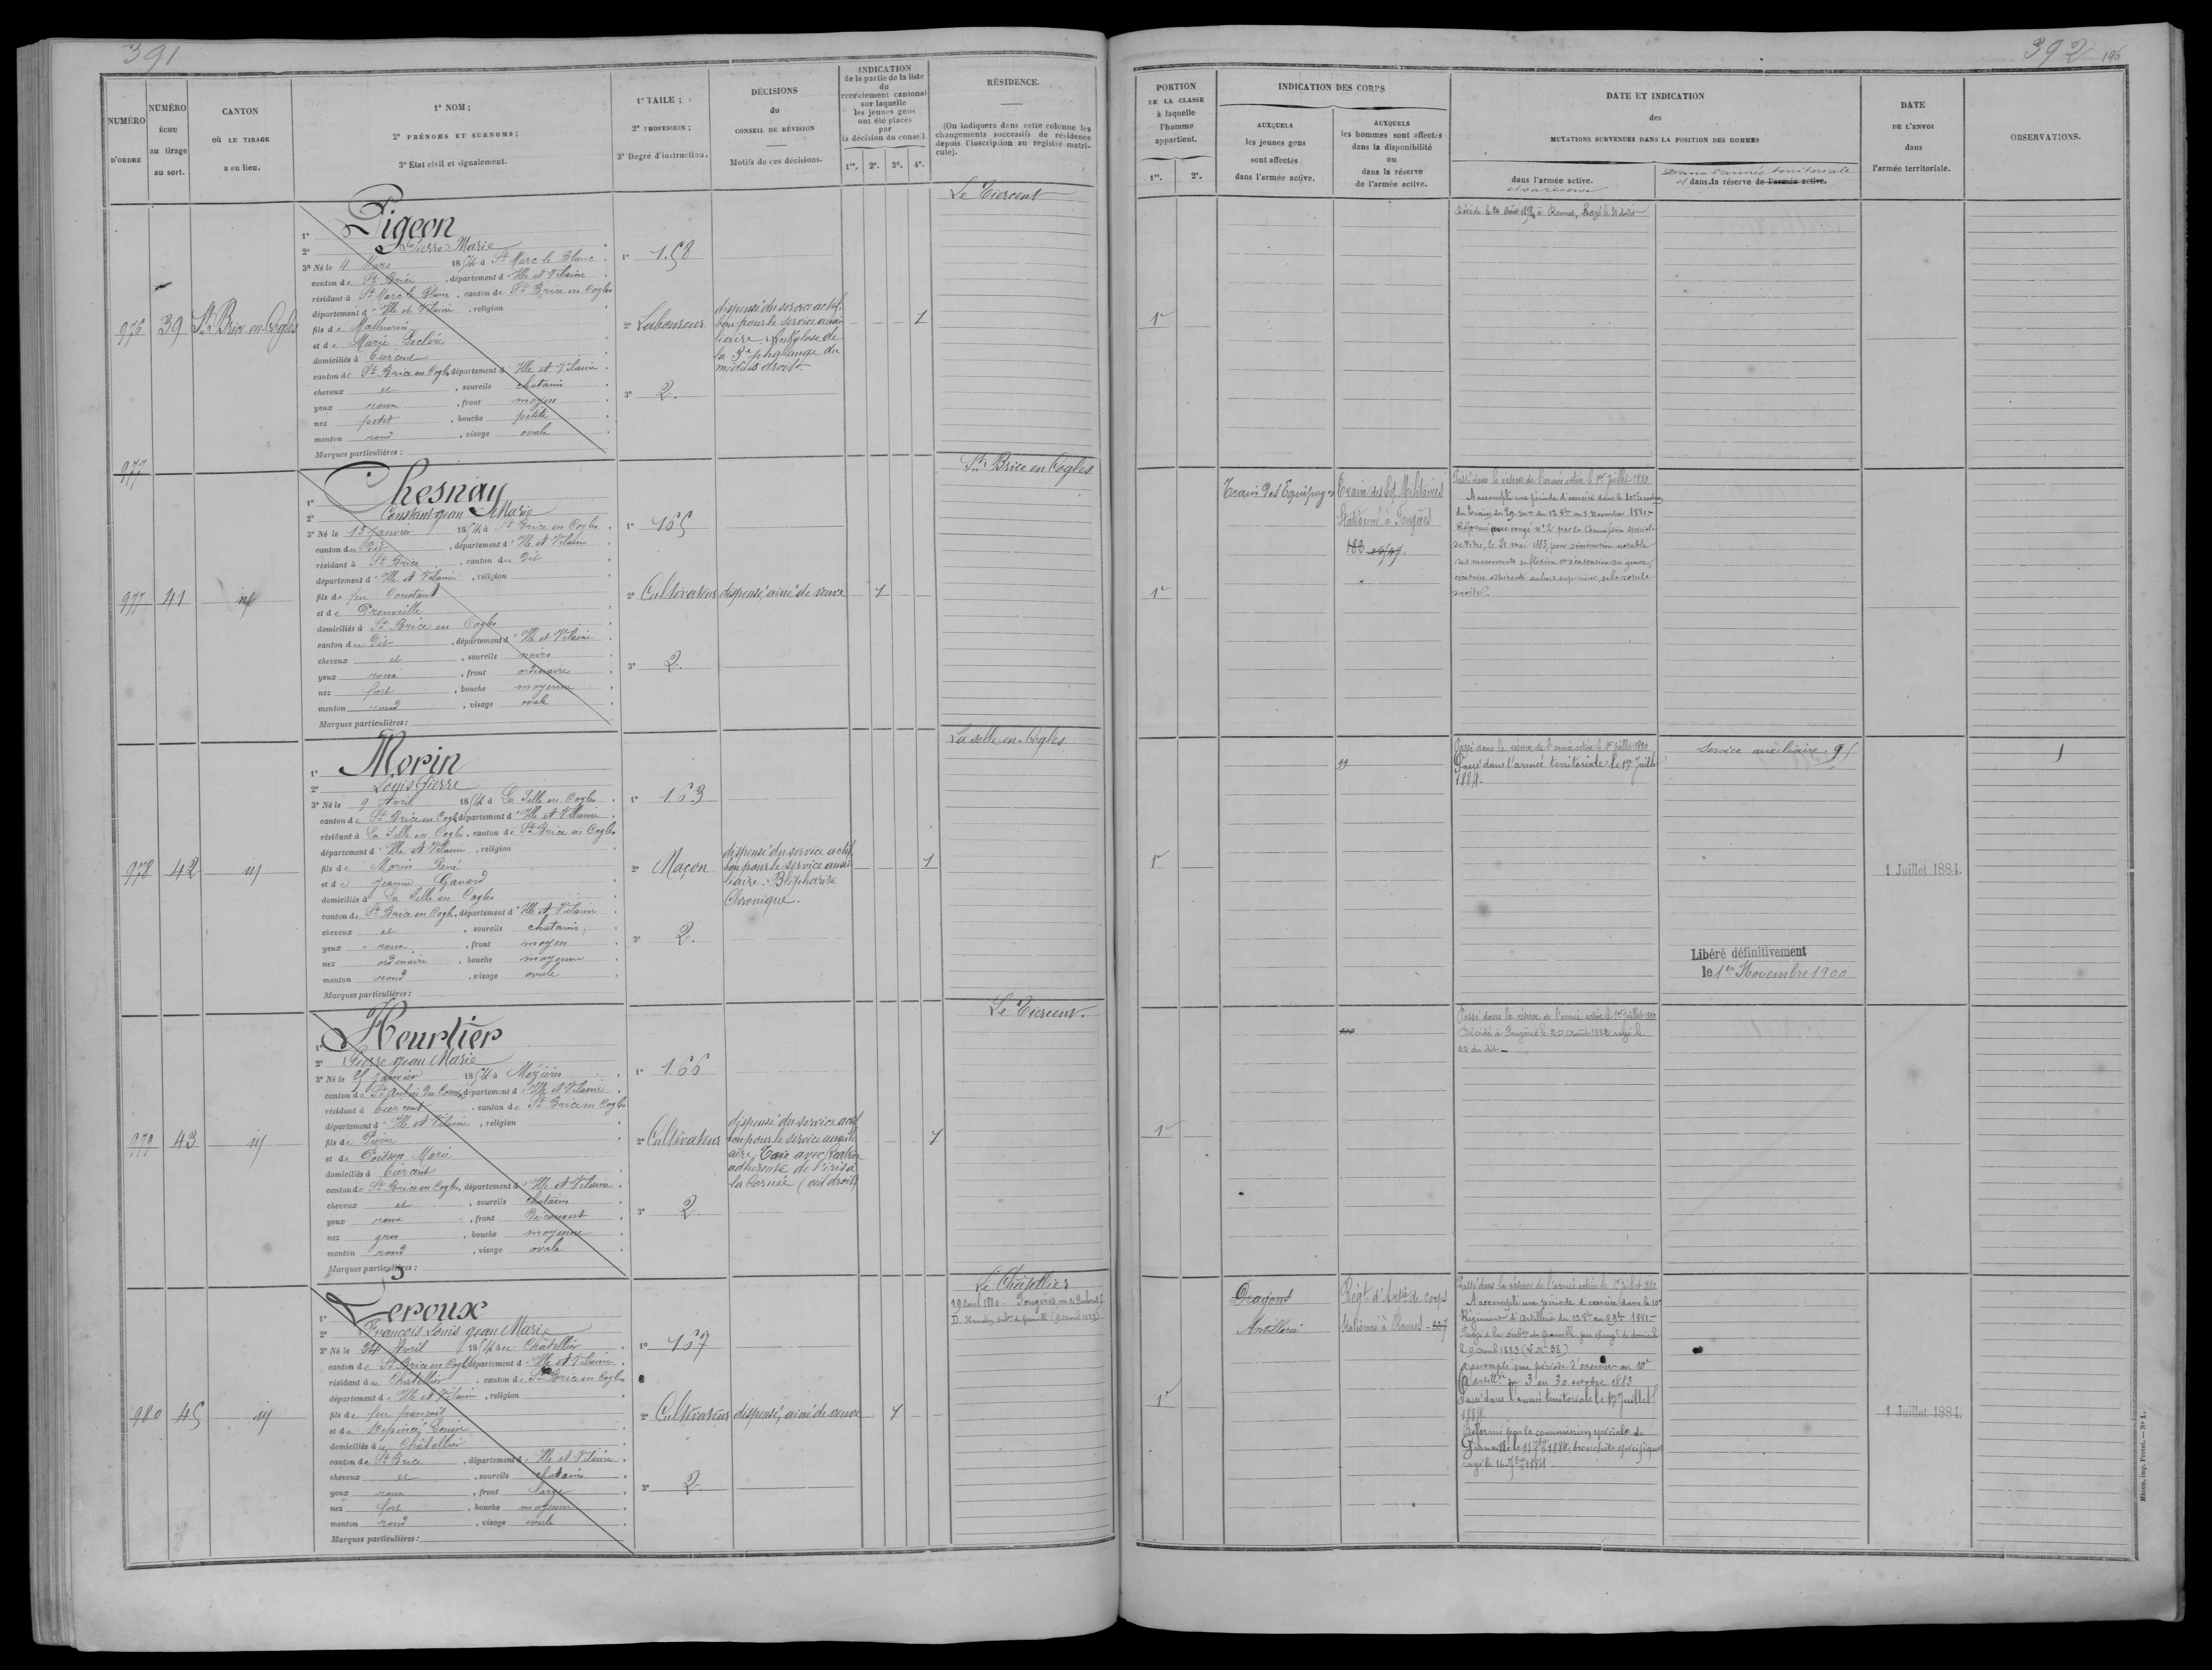 391
NUMÉRO
D'ORDRE
NUMÉRO
ÉCHU
au tirage
au sort.
CANTON
OÙ LE TIRAGE
a eu lieu.
1° NOM ;
2° PRÉNOMS ET SURNOMS ;
3° État civil et signalement.
1° TAILE ;
2° PROFESSION ;
3° Degré d'instruction.
DÉCISIONS
du
CONSEIL DE RÉVISION
Motifs de ces décisions.
INDICATION
de la partie de la liste
du
recrutement cantonal
sur laquelle
les jeunes gens
ont été placés
par
la décision du conseil
1re. 2e. 3e. 4e.
RÉSIDENCE.
(On indiquera dans cette colonne les
changements successifs de résidence
depuis l'inscription au registre matri-
cule).
976
39
St Brice en Cogles
1° Pigeon
2° Pierre Marie
3° Né le 4 Mars 1854 à St Marc le Blanc
canton de St Brice, département d'Ille et Vilaine
résidant à St Marc le Blanc, canton de St Brice en Cogles
département d'Ille et Vilaine, religion
fils de Mathurin
et de Marie
domiciliés à Tiercent
canton de St Brice en Cogl. département d'Ille et Vilaine
cheveux et, sourcils chatains
yeux roux, front moyen
nez petit, bouche petite
menton rond, visage ovale
Marques particulières :
1° 1.58
2° Laboureur
3° 2.
dispensé du service actif
bon pour le service auxi
liaire. Ankylose de
la 3e phalange du
médius droit
1
Le Tiercent
977
977
41
id
1° Chesnay
2° Constant jean Marie
3° Né le 13 janvier 1854 à St Brice en Cogles
canton du dit, département d'Ille et Vilaine
résidant à St Brice, canton du dit
département d'Ille et Vilaine, religion
fils de feu Constant
et de
domiciliés à St Brice en Cogles
canton du dit, département d'Ille et Vilaine
cheveux et, sourcils noirs
yeux roux, front ordinaire
nez fort, bouche moyenne
menton rond, visage ovale
Marques particulières :
1° 165
2° Cultivateur
3° 2.
dispensé, ainé de veuve
1
St Brice en Cogles
978
42
id
1° Morin
2° Louis Pierre
3° Né le 9 Avril 1854 à La Selle en Cogles
canton de St Brice en Cogl. département d'Ille et Vilaine
résidant à La Selle en Cogles, canton de St Brice en Cogles
département d'Ille et Vilaine, religion
fils de Morin René
et de Jeanne
domiciliés à La Selle en Cogles
canton de St Brice en Cogl. département d'Ille et Vilaine
cheveux et, sourcils chatains
yeux roux, front moyen
nez ordinaire, bouche moyenne
menton rond, visage ovale
Marques particulières :
1° 1.63
2° Maçon
3° 2.
dispensé du service actif
bon pour le service auxi
liaire. Blépharite
Chronique.
1
La selle en Cogles
979
43
id
1° Heurtier
2° Pierre jean Marie
3° Né le 25 Janvier 1854 à Mézières
canton de St Aubin du Cormier département d'Ille et Vilaine
résidant à Tiercent, canton de St Brice en Cogles
département d'Ille et Vilaine, religion
fils de Pierre
et de Poitson Marie
domiciliés à Tiercent
canton de St Brice en Cogles, département d'Ille et Vilaine
cheveux et, sourcils chatains
yeux roux, front découvert
nez gros, bouche moyenne
menton rond, visage ovale
Marques particulières :
1° 1.66
2° Cultivateur
3° 2
dispensé du service actif
bon pour le service auxili
aire. Taie avec
adhérente de l'iris à
la cornée (œil droit)
1
Le Tiercent.
980
45
id
1° Leroux
2° François Louis jean Marie
3° Né le 24 Avril 1854 au Châtellier
canton de St Brice en Cogl. département d'Ille et Vilaine
résidant au Chatellier, canton de St Brice en Cogles
département d'Ille et Vilaine, religion
fils de feu françois
et de
domiciliés au Châtellier
canton de St Brice, département d'Ille et Vilaine
cheveux et, sourcils chatains
yeux roux, front large
nez fort, bouche moyenne
menton rond, visage ovale
Marques particulières :
1° 167
2° Cultivateur
3° 2
dispensé, ainé de veuve
1
Le Châtellier
19 avril 1880. Fougères
392
196
PORTION
DE LA CLASSE
à laquelle
l'homme
appartient.
1re. 2e.
INDICATION DES CORPS
AUXQUELS
les jeunes gens
sont affectés
dans l'armée active.
AUXQUELS
les hommes sont affectés
dans la disponibilité
ou
dans la réserve
de l'armée active.
DATE ET INDICATION
des
MUTATIONS SURVENUES DANS LA POSITION DES HOMMES
dans l'armée active.
et sa réserve
Dans l'armée territoriale
et dans la réserve de l'armée active.
DATE
DE L'ENVOI
dans
l'armée territoriale.
OBSERVATIONS.
1re
Décédé le 24 Août à Rennes, Rayé le 31 du dit
1re
Train des Equipages
Train des Eq. Militaires
Stationné à Fougères
182
Passé dans la réserve de l'armée active le 1er Juillet 1880
A accompli une période d'exercice dans le 10e Escadron
du Train des Eq. mres du 12 8bre au 8 Novembre 1881.
Réformé avec congé n° 2 par la Commission spéciale
de Vitré, le 21 mai 1883, pour diminution notable
des mouvements de flexion et d'extension du genou,
cicatrice adhérente au bord supérieur de la rotule
droite.
1re
99
Passé dans la réserve de l'armée active le 1er Juillet 1880
Passé dans l'armée territoriale le 1er Juillet
1884.
Service auxiliaire.
Libéré définitivement
le 1er Novembre 1900
1 Juillet 1884.
1re
Passé dans la réserve de l'armée active le 1er Juillet 1880
Décédé à Fougères le 20 Août 1882, rayé le
22 du dit
1re
Dragons
Artillerie
Régt d'Artie de corps
Stationné à Rennes - 227
Passé dans la réserve de l'armée active le 1er Juillet 1880
A accompli une période d'exercice dans le 10e
Régiment d'Artillerie du 12 8bre au 8 9bre 1881
Passé à la subdon de Granville par changt de domicile
le 9 avril 1883
A accompli une période d'exercice au 10e
d'artillie du 3 au 30 octobre 1883
Passé dans l'armée territoriale le 1er Juillet
1884
Réformé par la commission spéciale de
Granville le 11 7bre 1884, bronchite spécifique
rayé le 16 7bre 1884
1 Juillet 1884.
Mâcon, imp. Protat. — N° 1.